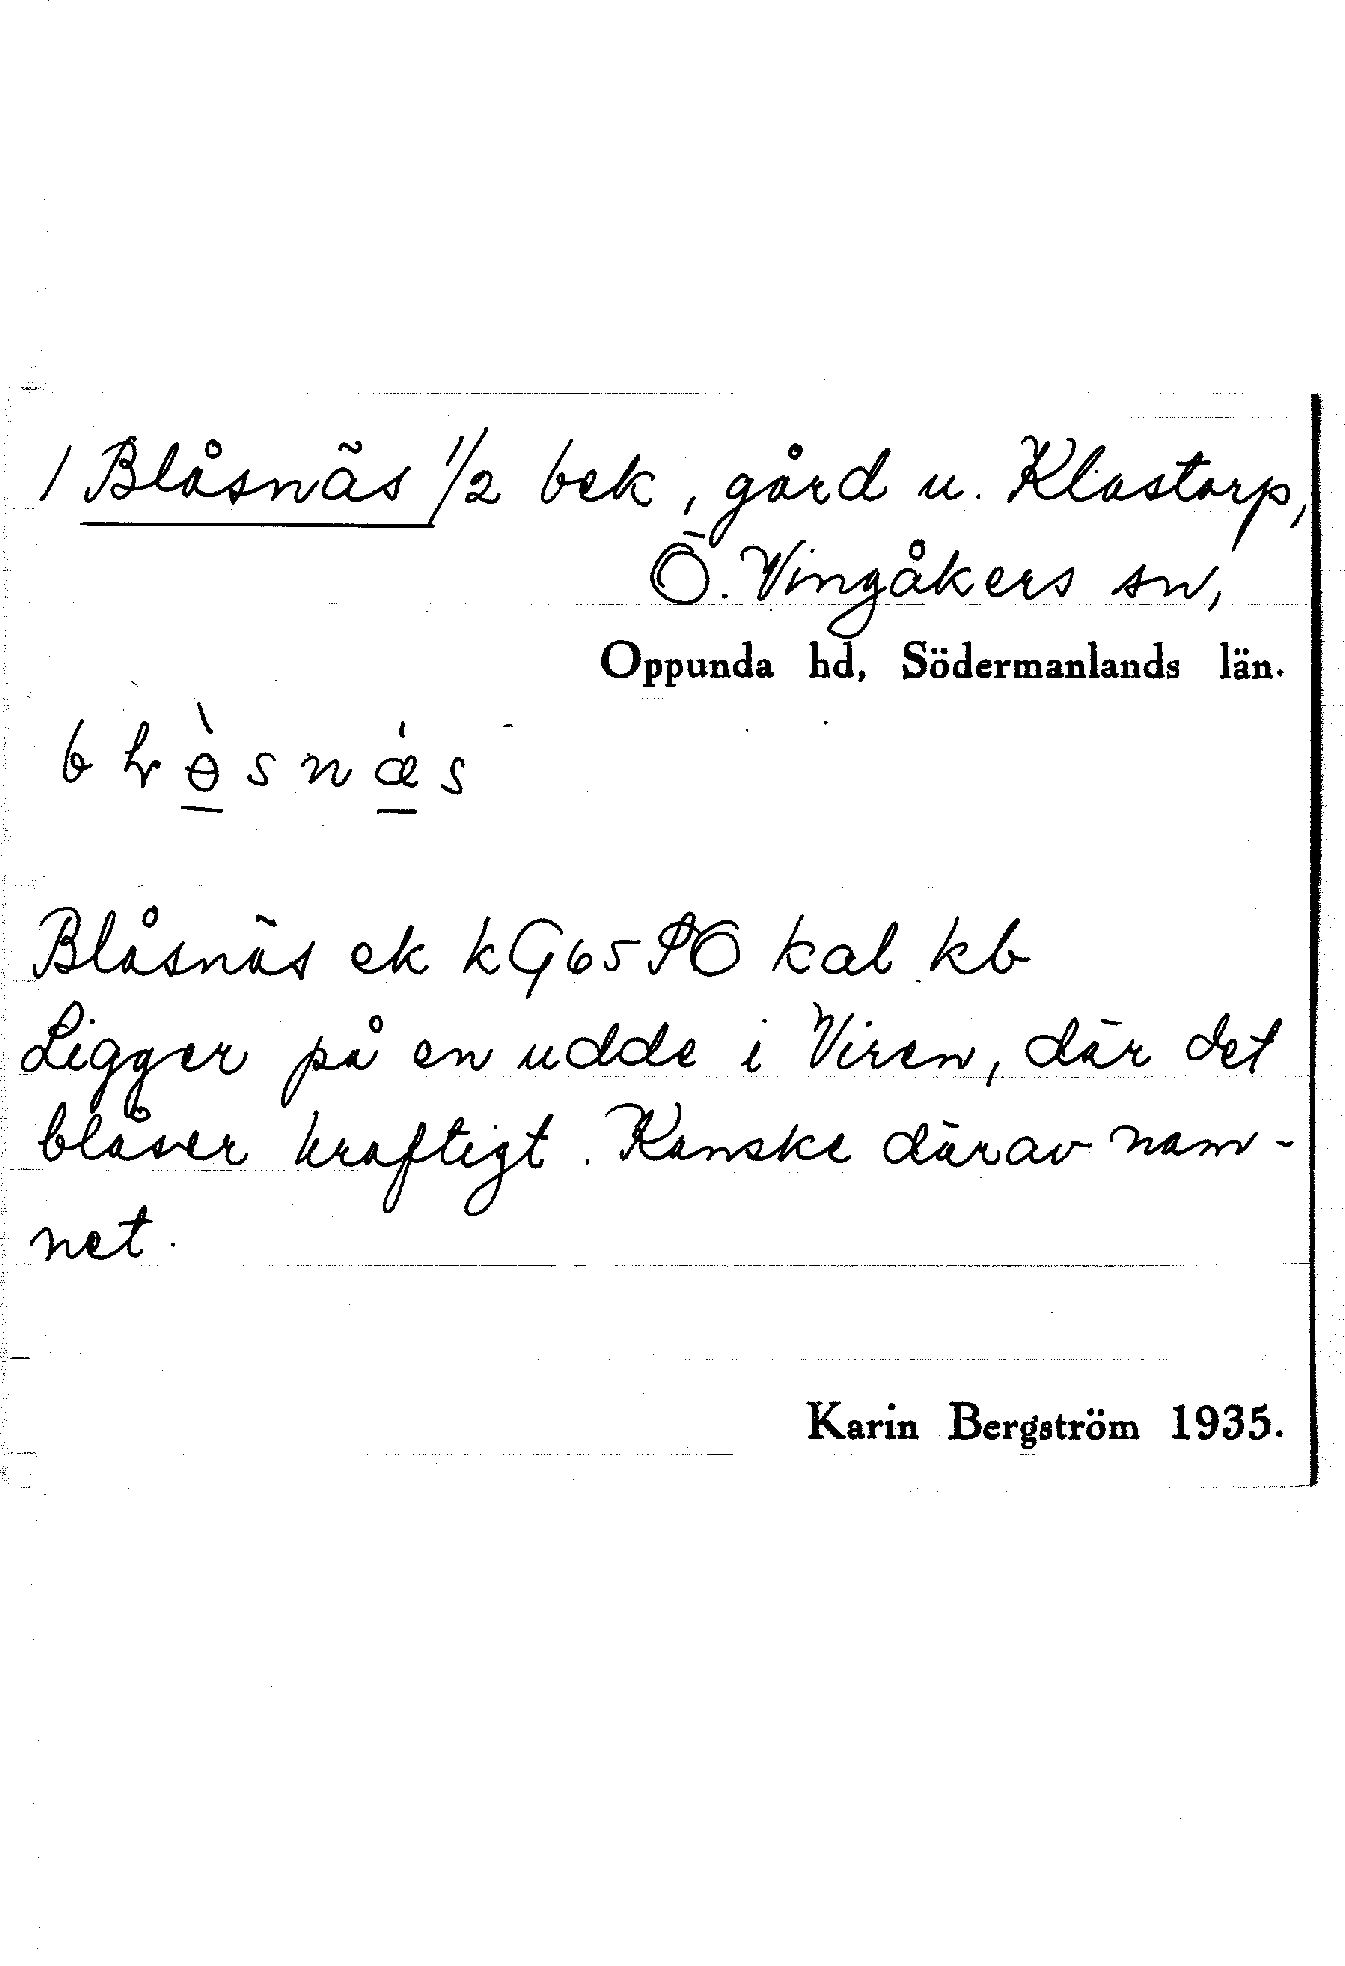 1 Blåsnäs 1/2 bek, gård u. Klastorp,
Ö. Vingåkers sn,
Oppunda hd, Södermanlands län.
Blåsnäs ek kG65SO kal kb
Ligger på en udde i Viren, där det
blåser kraftigt. Kanske därav nam-
net.
Karin Bergström 1935.